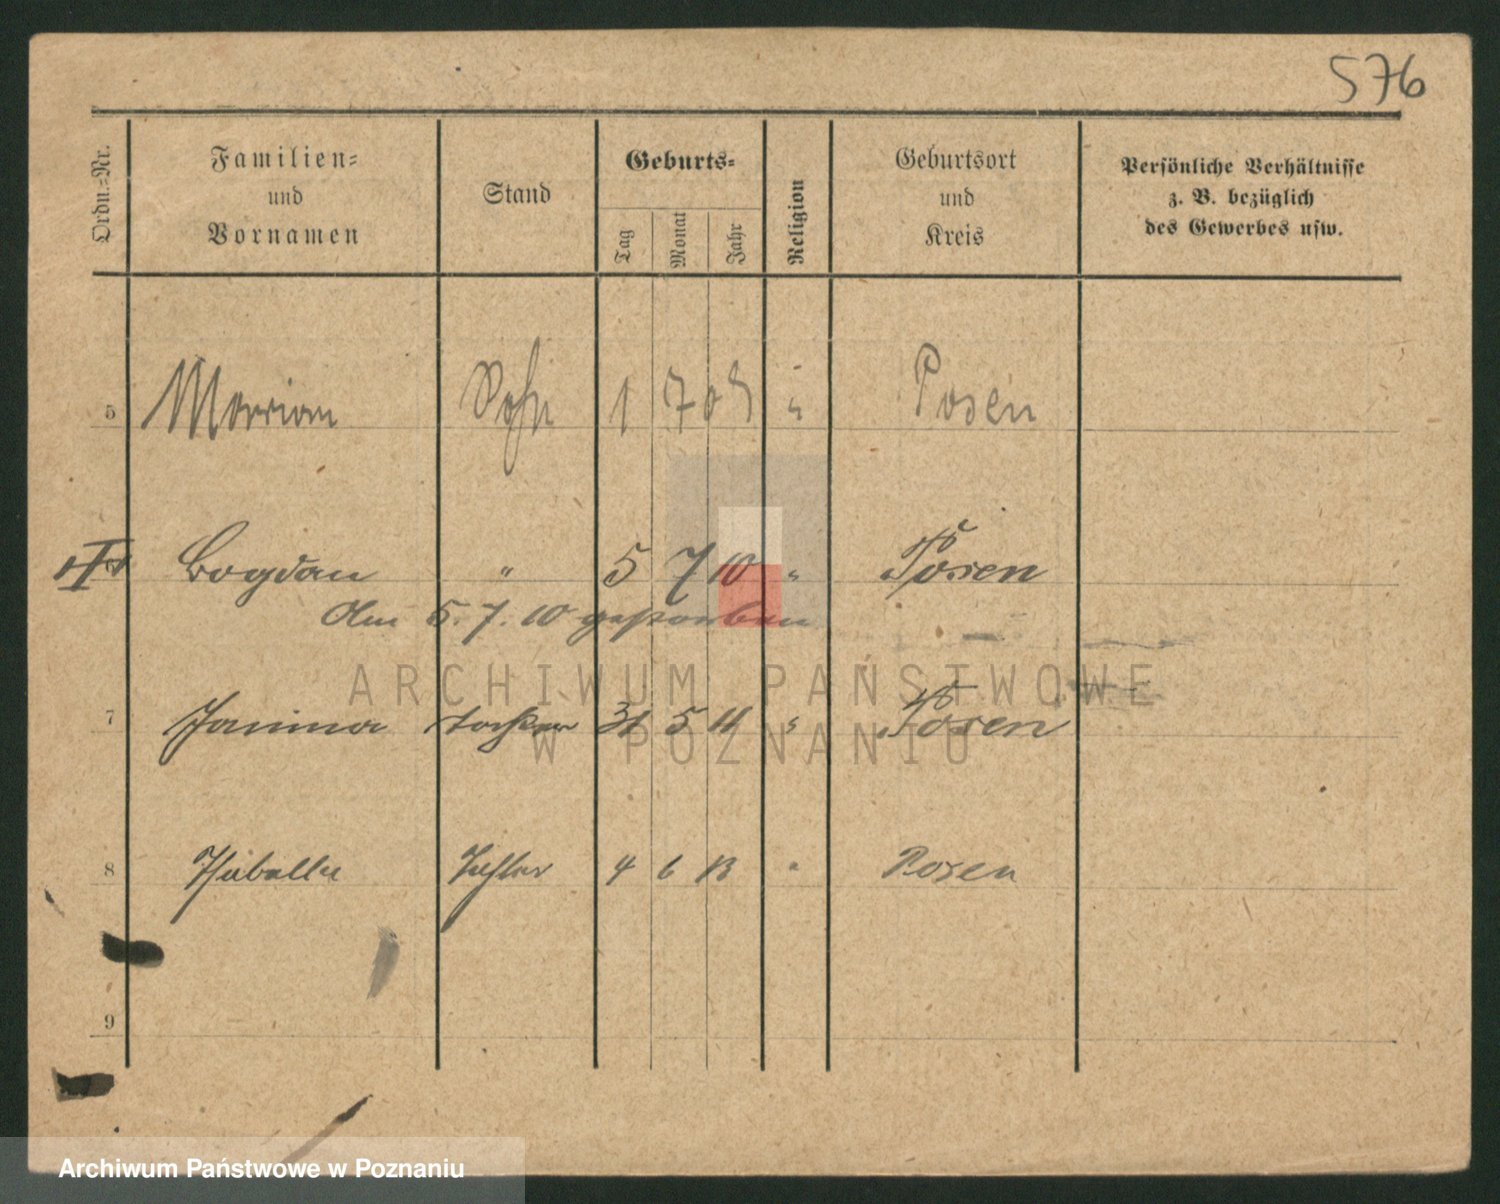 576
Ordn.-Nr.
Familien-
und
Vornamen
Stand
Geburts-
Tag
Monat
Jahr
Religion
Geburtsort
und
Kreis
Persönliche Verhältnisse
z. B. bezüglich
des Gewerbes usw.
5 Marian Sohn 1 7 09 " Posen
Bogdan " 5 7 10 " Posen
Am 5. 7. 10 gestorben
7 Janina tochter 31 5 11 " Posen
8 Isabella Tochter 4 6 13 " Posen
9
ARCHIWUM PAŃSTWOWE
W POZNANIU
Archiwum Państwowe w Poznaniu